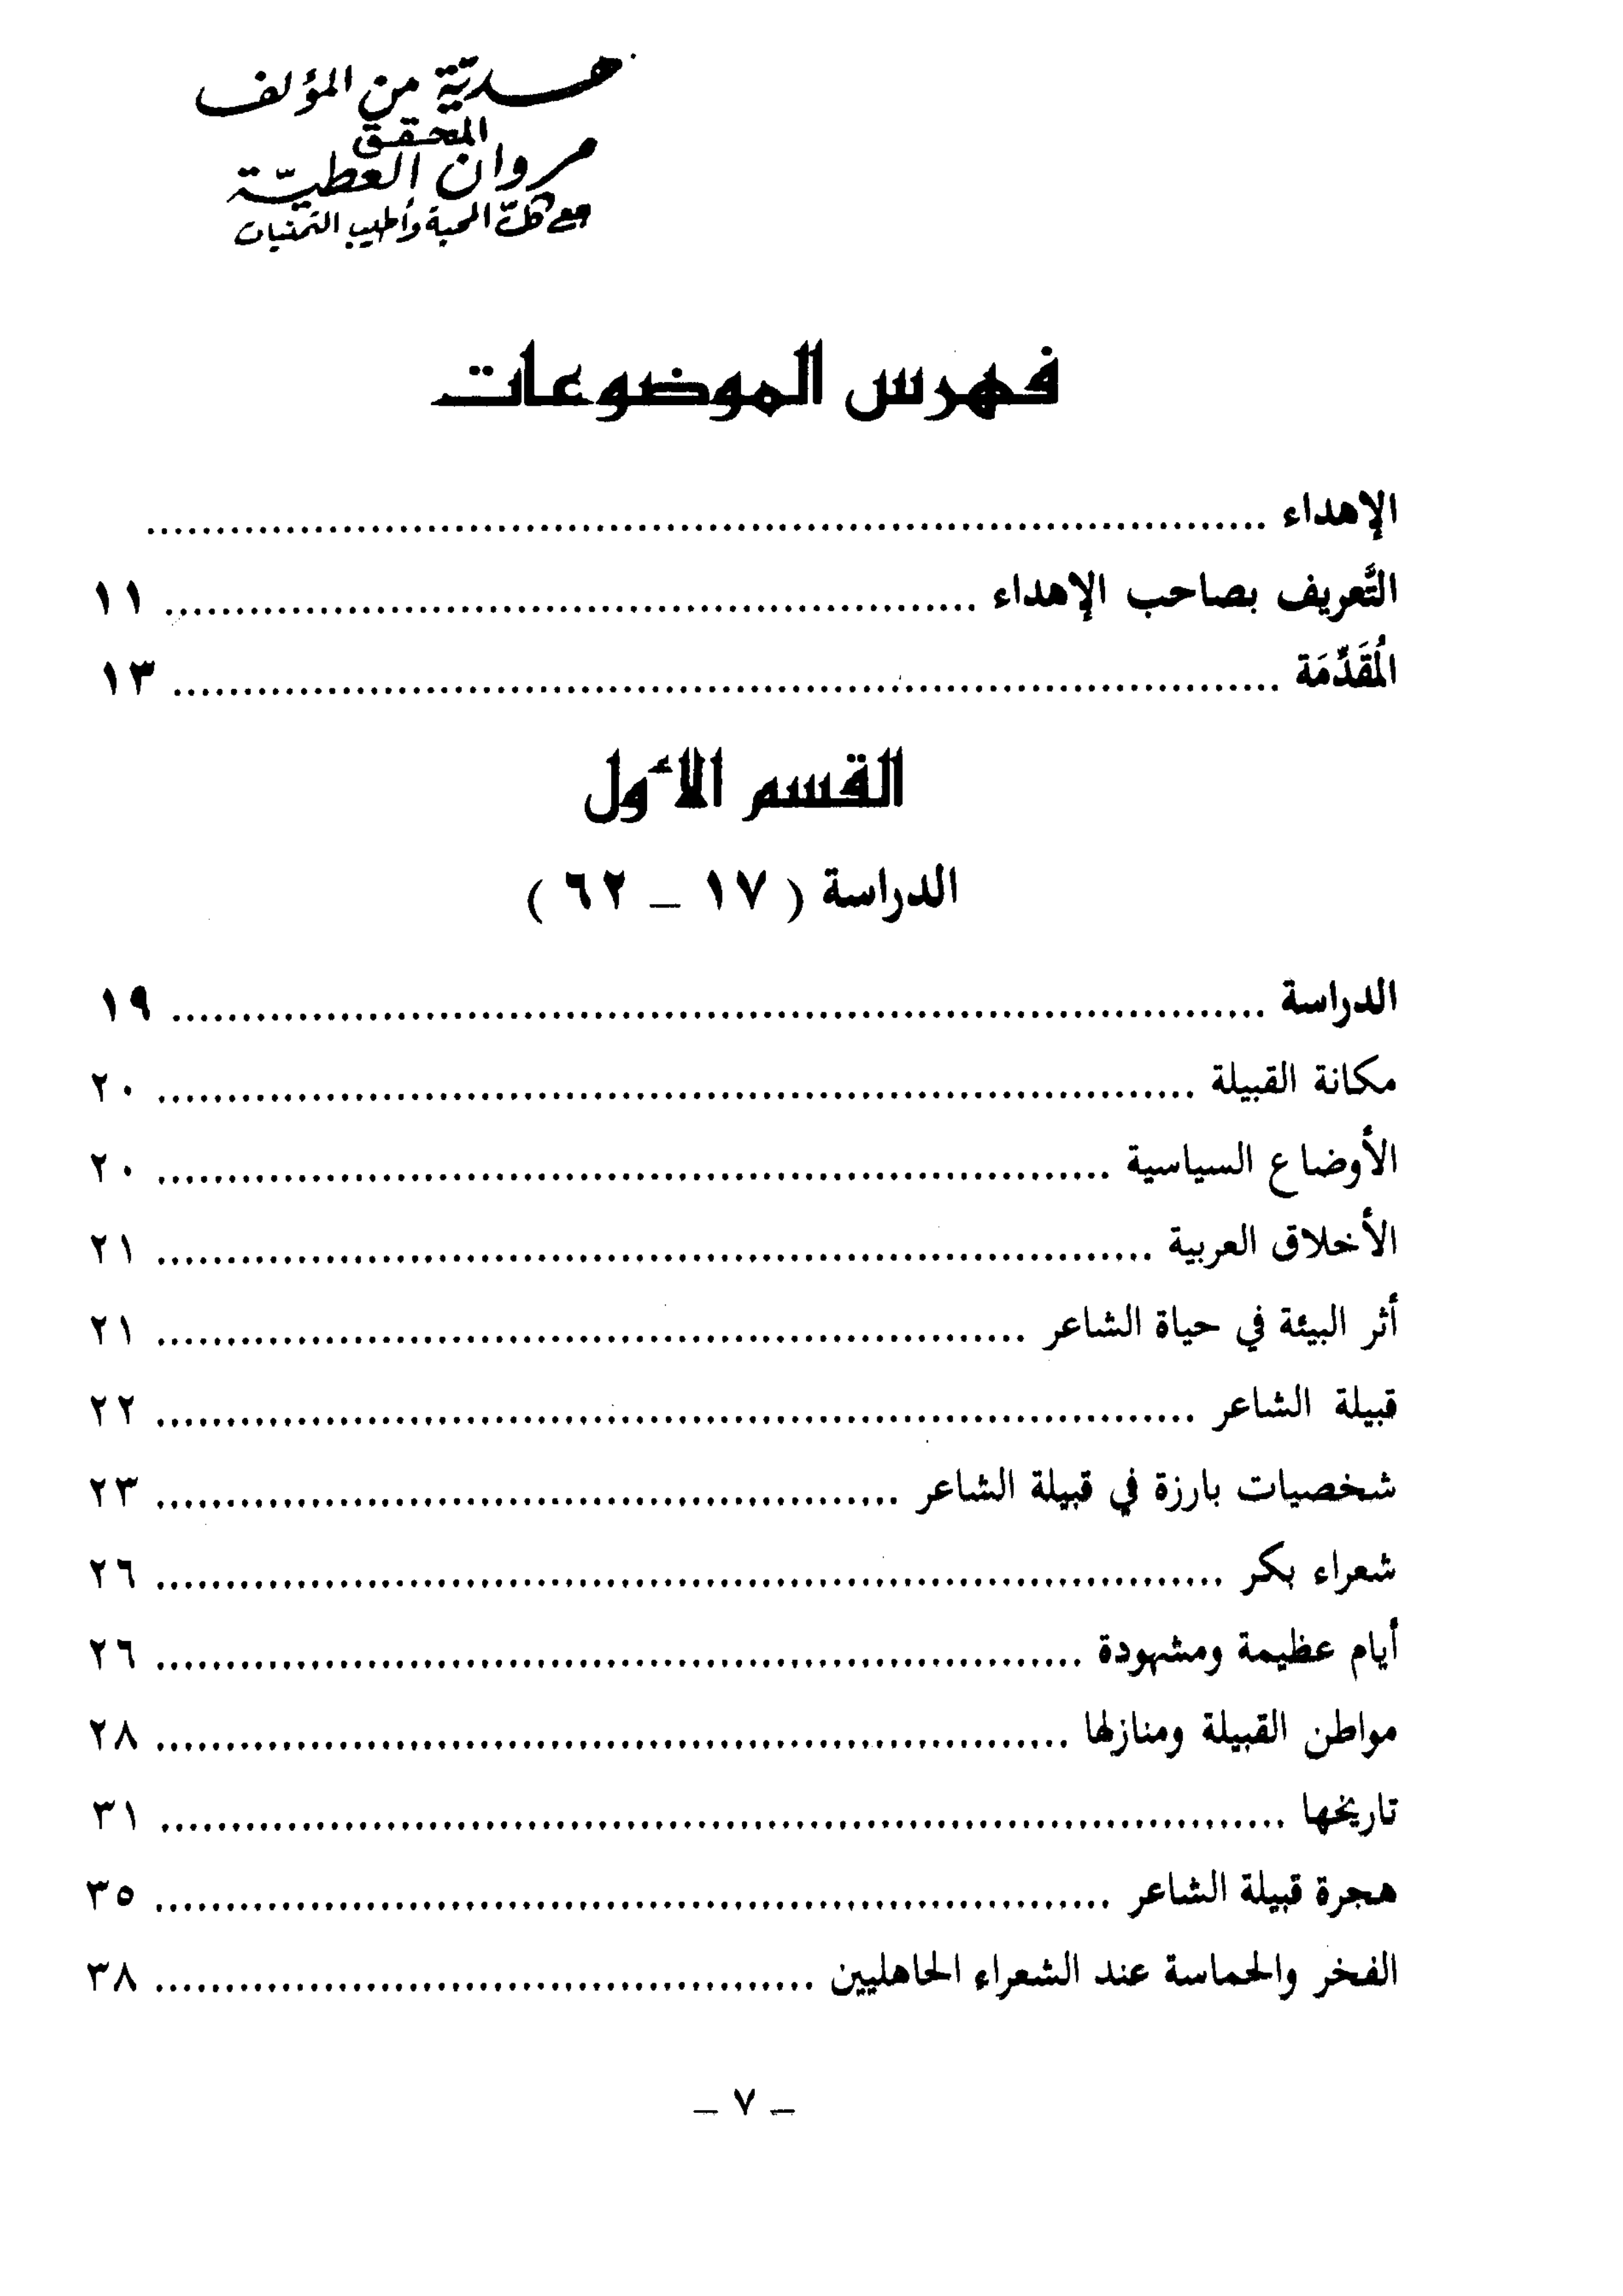 هديّة من المؤلف
المحقق
مروان العطيّة
مع كلّ المحبة وأطيب التمنيات
فهرس الموضوعات
الإهداء ........................................
التَّعريف بصاحب الإهداء ........................................ ١١
المُقَدِّمَة ........................................ ١٣
القسم الأول
الدراسة ( ١٧ – ٦٢ )
الدراسة ........................................ ١٩
مكانة القبيلة ........................................ ٢٠
الأوضاع السياسية ........................................ ٢٠
الأخلاق العربية ........................................ ٢١
أثر البيئة في حياة الشاعر ........................................ ٢١
قبيلة الشاعر ........................................ ٢٢
شخصيات بارزة في قبيلة الشاعر ........................................ ٢٣
شعراء بكر ........................................ ٢٦
أيام عظيمة ومشهودة ........................................ ٢٦
مواطن القبيلة ومنازلها ........................................ ٢٨
تاريخها ........................................ ٣١
هجرة قبيلة الشاعر ........................................ ٣٥
الفخر والحماسة عند الشعراء الحاهليين ........................................ ٣٨
– ٧ –